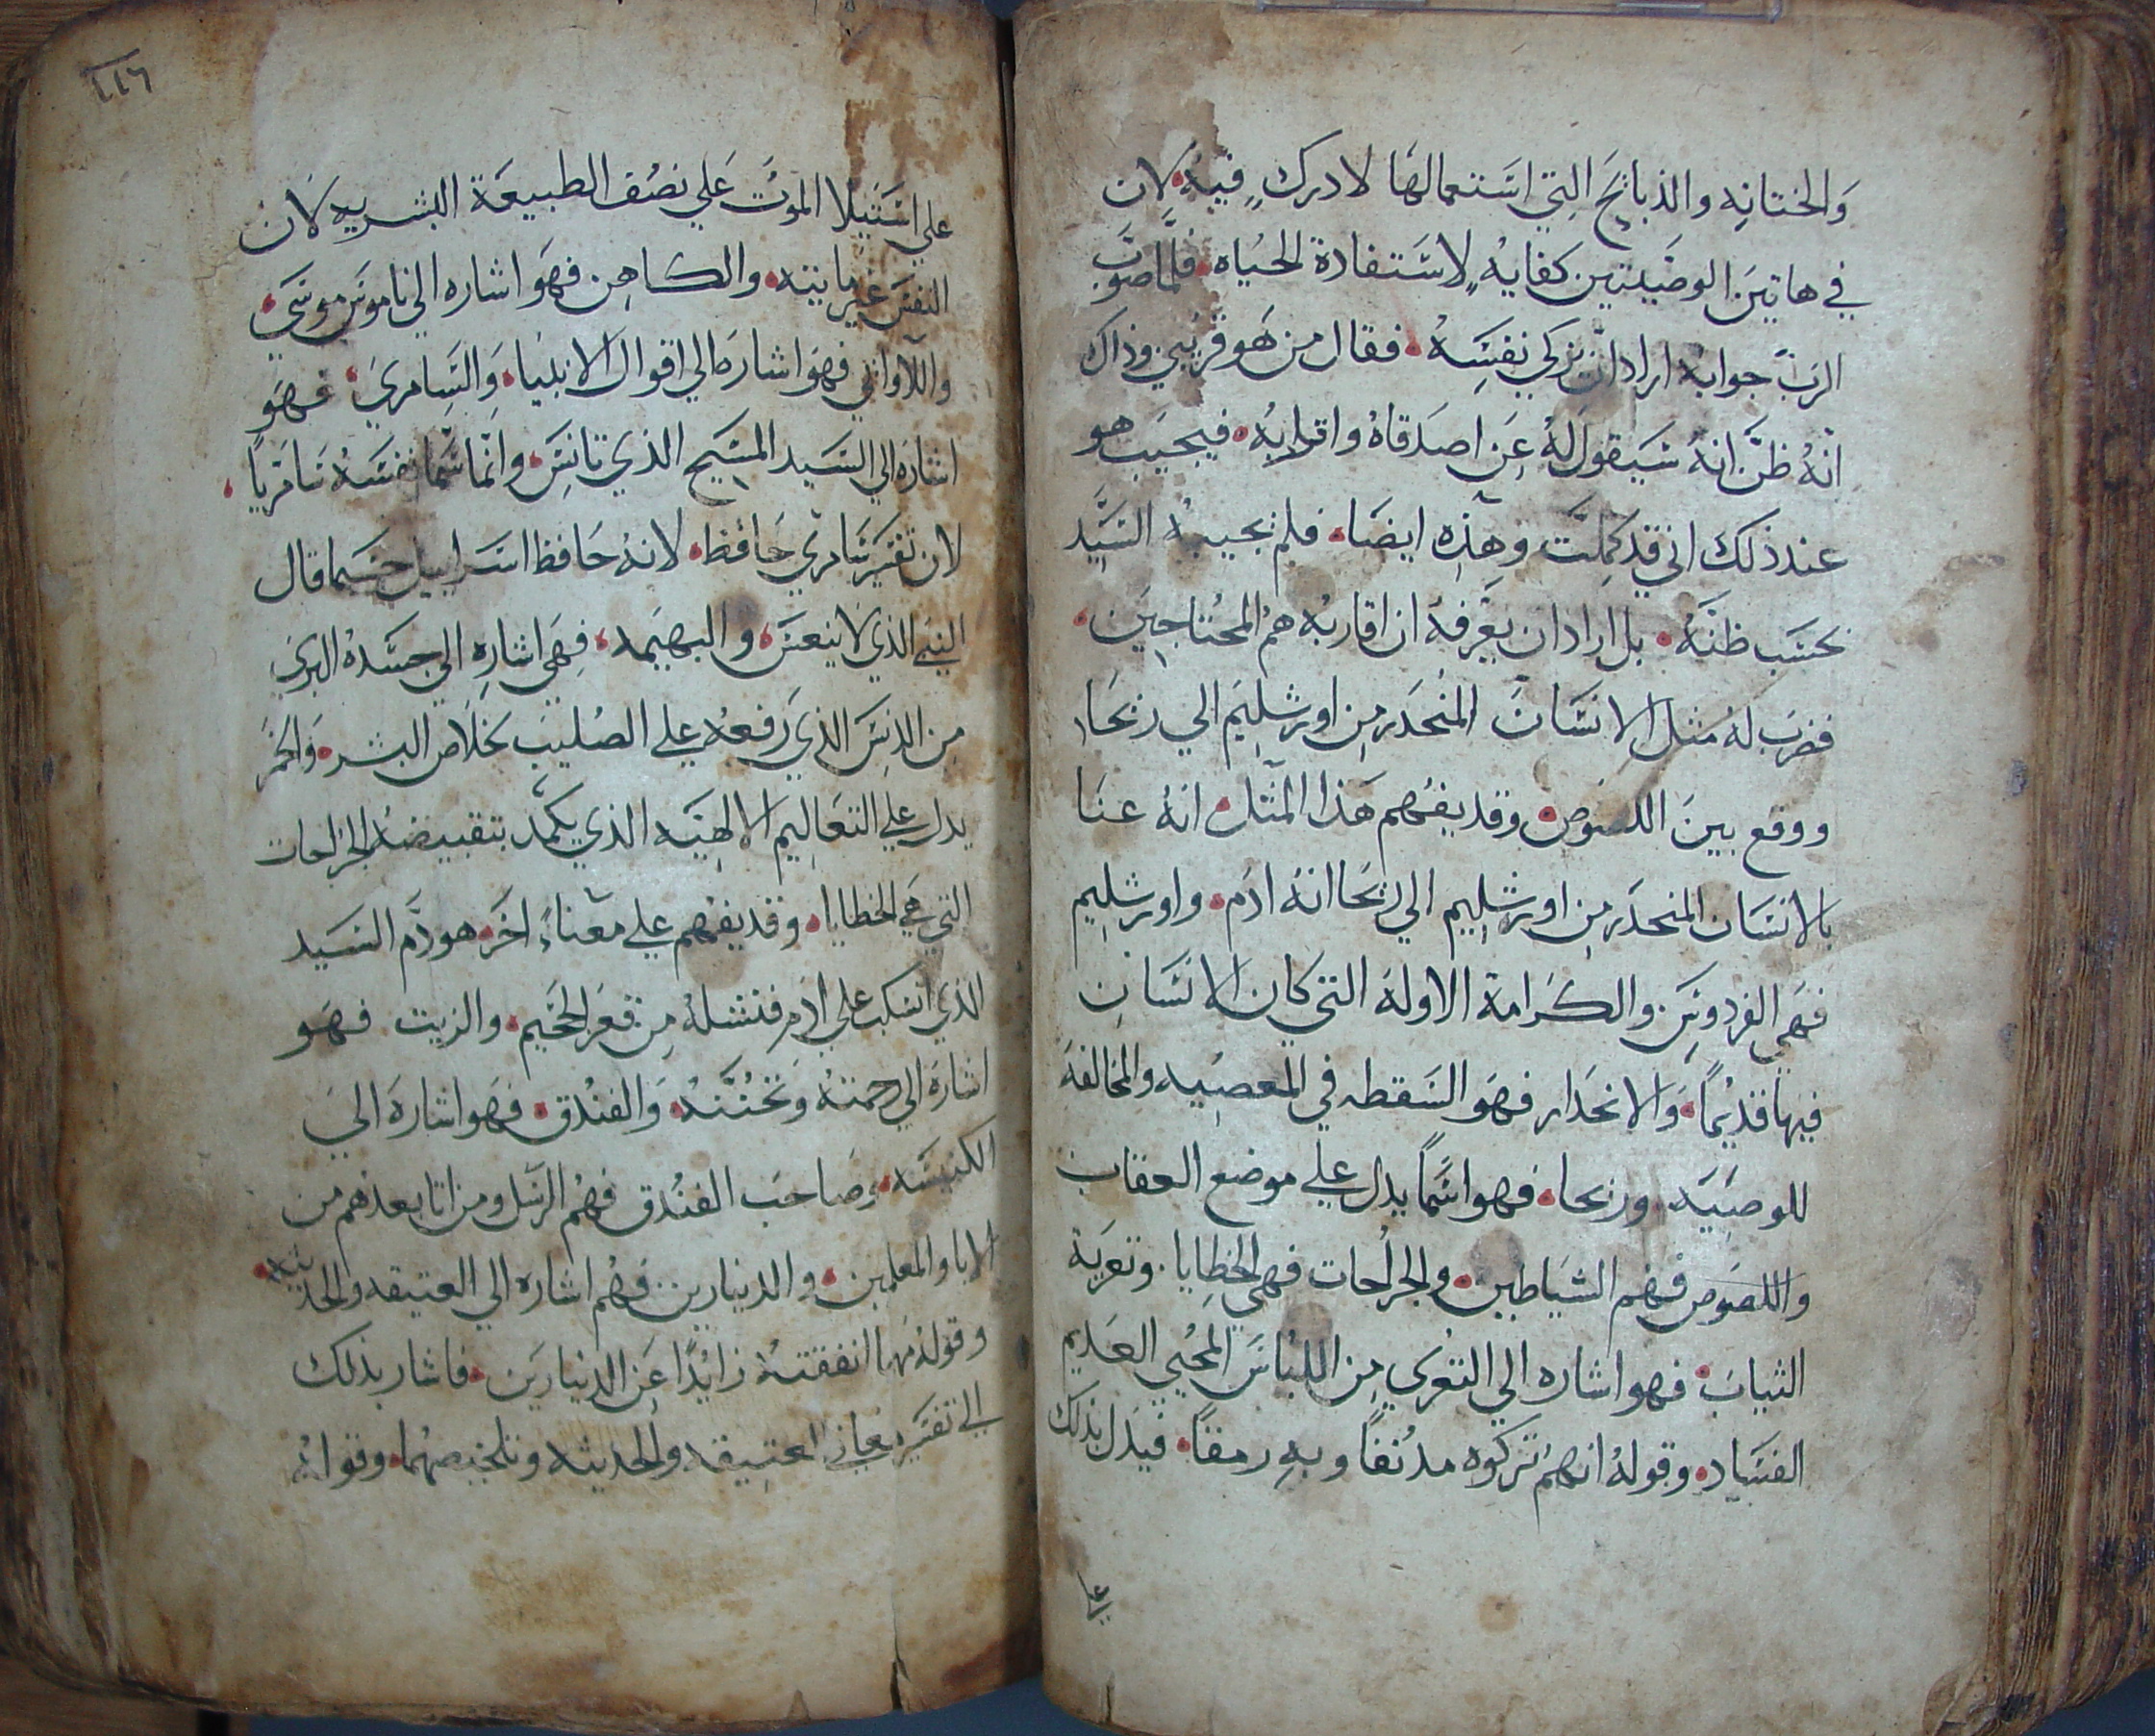 والختانه والذبايح التي استعمالها لا درك فيه لان
في هاتين الوصيتين كفايه لاستفادة الحياه فلما صوب
الرب جوابه اراد ان يزكي نفسه فقال من هو قريبي وذاك
انه ظن انه سيقول له عن اصدقاه واقرابه فيجيب هو
عند ذلك اني قد كملت وهذه ايضا فلم يجيبه السيد
بحسب ظنه بل اراد ان يعرفه ان اقاربه هم المحتاجين
فضرب له مثل الانسان المنحدر من اورشليم الي ريحا
ووقع بين اللصوص وقد يفهم هذا المثل انه عنا
بالانسان المنحدر من اورشليم الي ريحا انه ادم واورشليم
فهي الفردوس والكرامة الاوله التي كان الانسان
فيها قديماً والانحدار فهو السقطه في المعصيه والمخالفة
للوصيه وريحا فهو اسماً يدل علي موضع العقاب
واللصوص فهم الشياطين والجراحات فهي الخطايا وتعرية
الثياب فهو اشاره الي التعري من اللباس المحيي العديم
الفساد وقوله انهم تركوه مدنفاً وبه رمقاً فيدل بذلك
علي
٢٢٦
علي استيلا الموت علي نصف الطبيعة البشريه لان
النفس غير مايته والكاهن فهو اشاره الي ناموس موسي
واللاواني فهو اشارة الي اقوال الانبيا والسامري فهو
اشارة الي السيد المسيح الذي تانس وانما سما نفسه سامرياً
لان تفسير سامري حافظ لانه حافظ اسراييل حسبما قال
النبي الذي لا ينعس والبهيمه فهي اشاره الي جسده البري
من الدنس الذي رفعه علي الصليب لخلاص البشر والخمر
يدل علي التعاليم الالهيه الذي يكمد بتقبيضه الجراحات
التي هي الخطايا وقد يفهم علي معناءً اخر هو دم السيد
الذي انسكب علي ادم فنتشله من قعر الجحيم والزيت فهو
اشارة الي رحمته وتحننه والفندق فهو اشارة الي
الكنيسه وصاحب الفندق فهم الرسل ومن اتا بعدهم من
الابا والمعلمين والدينارين فهم اشاره الي العتيقه والحديثه
وقوله مهما انفقته زايداً عن الدينارين فاشار بذلك
الي تفسير معاني العتيقه والحديثه وتلخيصهما وقوله